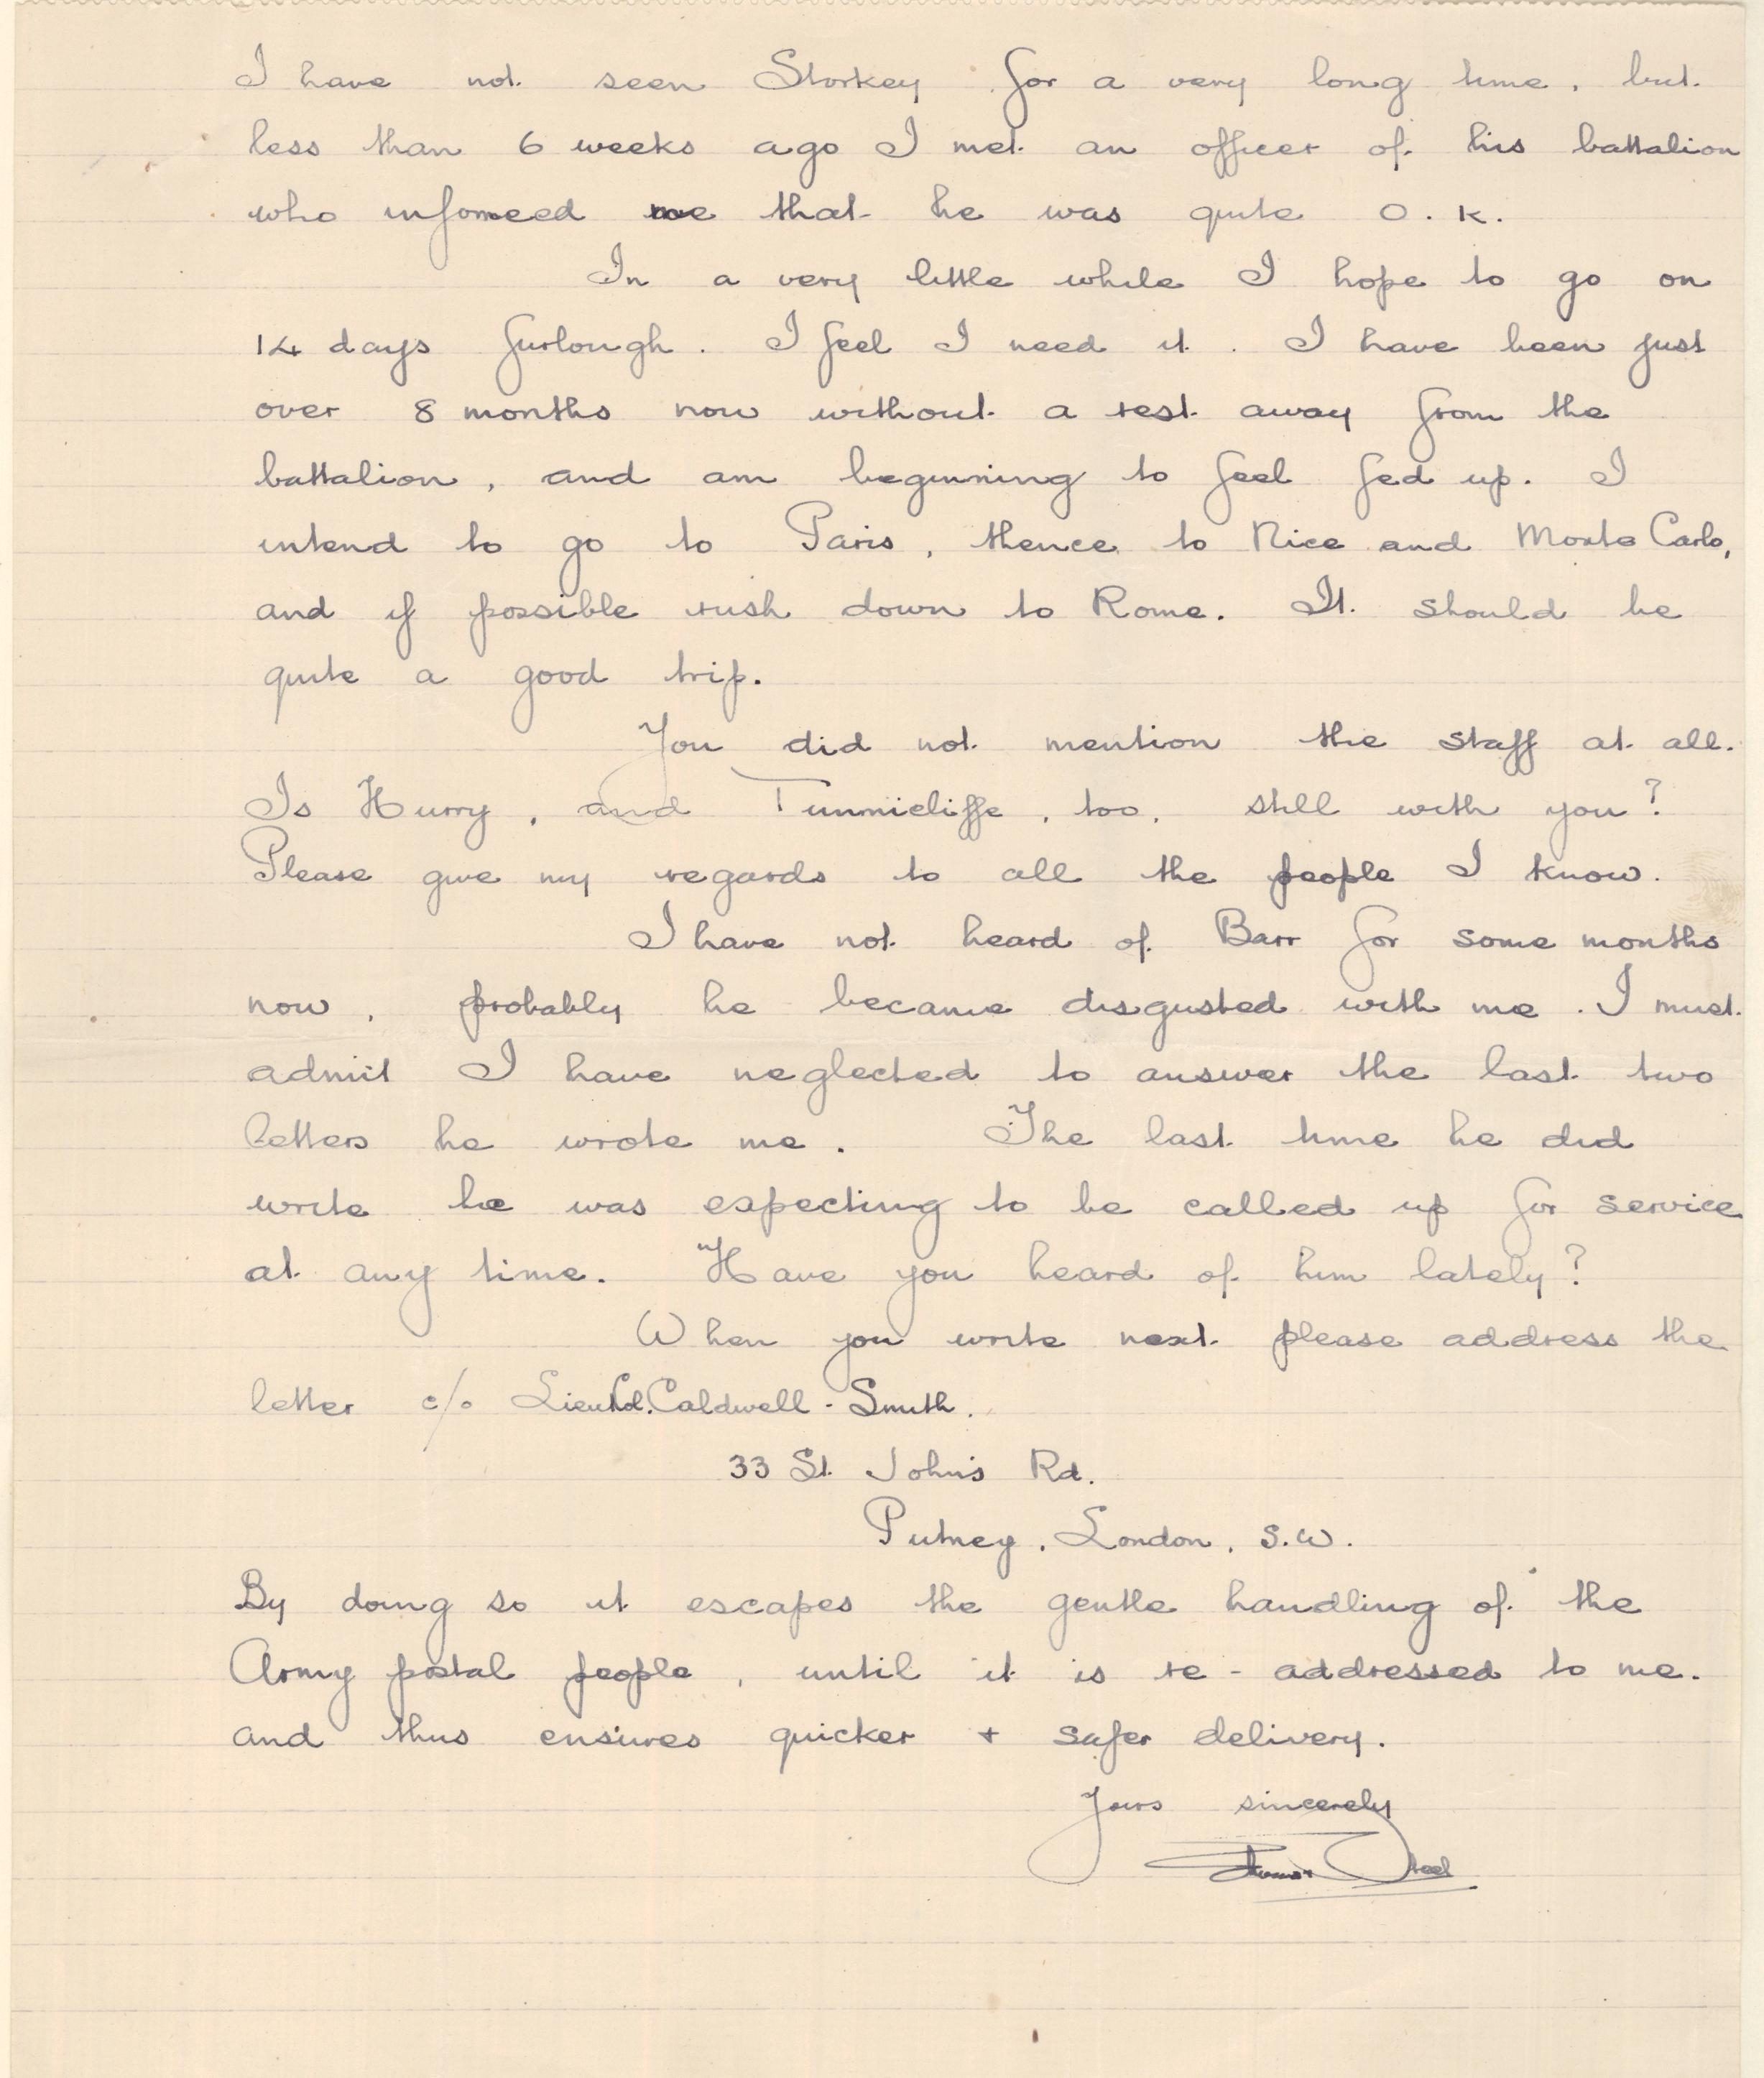 I have not seen Storkey for a very long time, but
less than 6 weeks ago I met an officer of his battalion
who infomeed me that he was quite O.K.
In a very little while I hope to go on
14 days furlough. I feel I need it. I have been just
over 8 months now without a rest away from the
battalion, and am beginning to feel fed up. I
intend to go to Paris, thence to Nice and Monte Carlo,
and if possible rush down to Rome. It should be
quite a good trip.
You did not mention the staff at all.
Is Hurry, and Tunnicliffe, too, still with you?
Please give my regards to all the people I know.
I have not heard of Barr for some months
now, probably he became disgusted with me. I must
admit I have neglected to answer the last two
letters he wrote me. The last time he did
write he was expecting to be called up for service
at any time. Have you heard of him lately?
When you write next please address the
letter c/o Caldwell-Smith.
33 St. John's Rd.
Putney, London, S.W.
By doing so it escapes the gentle handling of the
Army postal people, until it is re-addressed to me.
and thus ensures quicker + safer delivery.
Yours sincerely